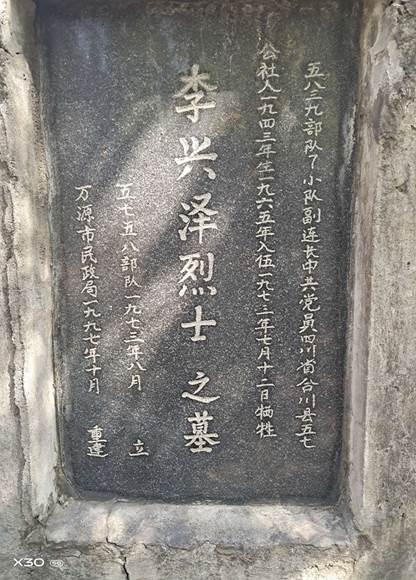 五八三九部队7小队副连长中共党员四川省合川县五七
公社人一九四三年生一九六五年入伍一九七三年七月十二日牺牲
李兴泽烈士之墓
五七五八部队一九七三年八月 立
万源市民政局一九九七年十月 重建
X30